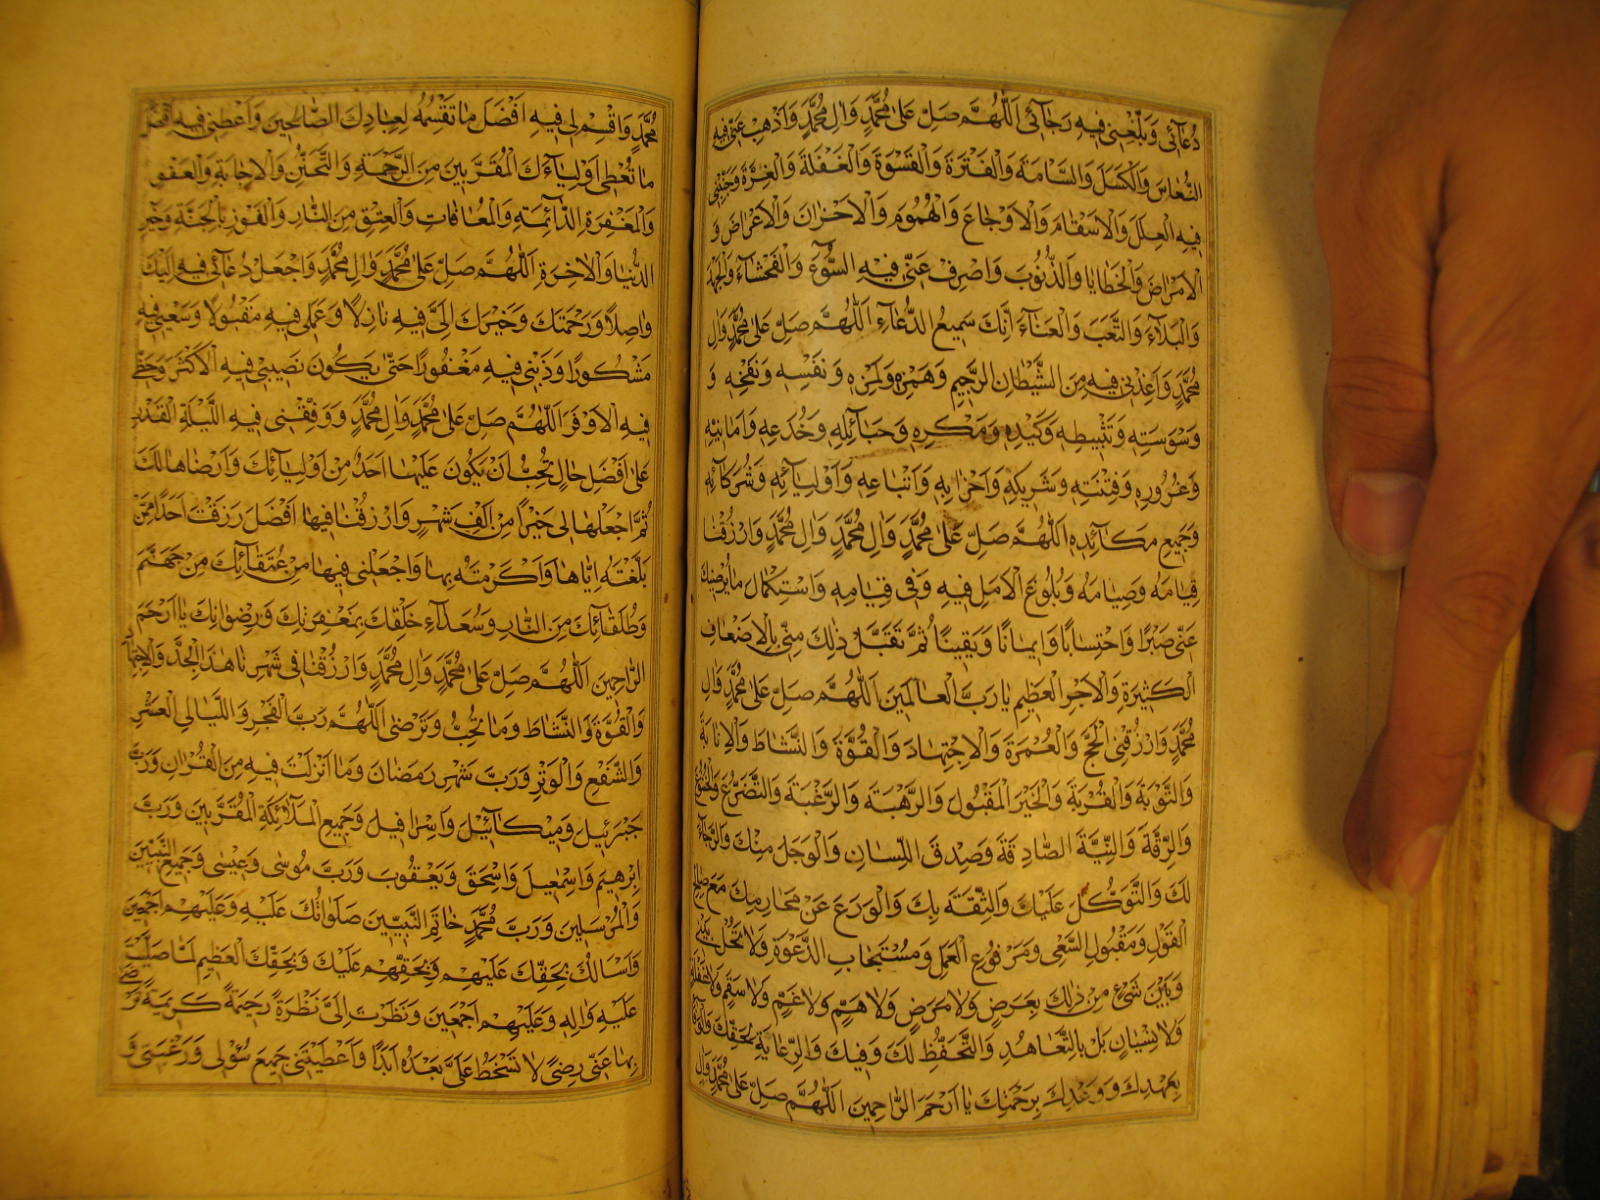 دُعَآئى وَبَلِّغْنِى فِيهِ رَجَآئى اَللّٰهُمَّ صَلِّ عَلىٰ مُحَمَّدٍ وَاٰلِ مُحَمَّدٍ وَاَذْهِبْ عَنّى فِيهِ
النُّعٰاسَ وَالْكَسَلَ وَالسَّامَةَ وَالْفَتْرَةَ وَالْقَسْوَةَ وَالْغَفْلَةَ وَالْغِرَّةَ وَجَنِّبْنِى
فِيهِ الْعِلَلَ وَالْاَسْقٰامَ وَالْاَوْجٰاعَ وَالْهُمُومَ وَالْاَحْزٰانَ وَالْاَعْرٰاضَ وَ
الْاَمْرٰاضَ وَالْخَطٰايٰا وَالذُّنُوبَ وَاصْرِفْ عَنّى فِيهِ السُّوٓءَ وَالْفَحْشآءَ وَالْجَهْدَ
وَالْبَلآءَ وَالتَّعَبَ وَالْعَنآءَ اِنَّكَ سَمِيعُ الدُّعٰآءِ اَللّٰهُمَّ صَلِّ عَلىٰ مُحَمَّدٍ وَاٰلِ
مُحَمَّدٍ وَاَعِذْنى فِيهِ مِنَ الشَّيْطٰانِ الرَّجِيمِ وَهَمْزِهِ وَلَمْزِهِ وَنَفْسِه وَنَفْخِهِ وَ
وَسْوَسَتِهِ وَتَثْبِيطِهِ وَكَيْدِهِ وَمَكْرِهِ وَحَبٰآئِلِهِ وَخُدَعِهِ وَاَمٰانِيِّهِ
وَغُرُورِهِ وَفِتْنَتِهِ وَشَرِيكِهِ وَاَحْزٰابِهِ وَاَتْبٰاعِهِ وَاَوْلِيٰآئِهِ وَشُرَكآئِهِ
وَجَمِيعِ مَكآئِدِهِ اَللّٰهُمَّ صَلِّ عَلىٰ مُحَمَّدٍ وَاٰلِ مُحَمَّدٍ وَاٰلِ مُحَمَّدٍ وَارْزُقْنٰا
قِيٰامَهُ وَصِيٰامَهُ وَبُلُوغَ الْاَمَلِ فِيهِ وَفى قِيٰامِهِ وَاسْتِكْمٰالَ مٰا يُرْضِيكَ
عَنّى صَبْرًا وَاحْتِسٰابًا وَايمٰانًا وَيَقِينًا ثُمَّ تَقَبَّلْ ذٰلِكَ مِنّى بِالْاَضْعٰافِ
الْكَثِيرَةِ وَالْاَجْرِ الْعَظِيمِ يٰا رَبَّ الْعٰالَمِينَ اَللّٰهُمَّ صَلِّ عَلىٰ مُحَمَّدٍ وَاٰلِ
مُحَمَّدٍ وَارْزُقْنِى الْحَجَّ وَالْعُمْرَةَ وَالْاِجْتِهٰادَ وَالْقُوَّةَ وَالنَّشٰاطَ وَالْاِنٰابَةَ
وَالتَّوْبَةَ وَالْقُرْبَةَ وَالْخَيْرَ الْمَقْبُولَ وَالرَّهْبَةَ وَالرَّغْبَةَ وَالتَّضَرُّعَ وَالْخُشُوعَ
وَالرِّقَّةَ وَالنِّيَّةَ الصّٰادِقَةَ وَصِدْقَ اللِّسٰانِ وَالْوَجَلَ مِنْكَ وَالرَّجٰآءَ
لَكَ وَالتَّوَكُّلَ عَلَيْكَ وَالثِّقَةَ بِكَ وَالْوَرَعَ عَنْ مَحٰارِمِكَ مَعَ صٰالِحِ
الْقَوْلِ وَمَقْبُولِ السَّعْىِ وَمَرْفُوعِ الْعَمَلِ وَمُسْتَجٰابِ الدَّعْوَةِ وَلا تَحُلْ بَيْنى
وَبَيْنَ شَىْءٍ مِنْ ذٰلِكَ بِعَرَضٍ وَلا مَرَضٍ وَلا هَمٍّ وَلا غَمٍّ وَلا سَقَمٍ وَلا غَفْلَةٍ
وَلا نِسْيٰانٍ بَلْ بِالتَّعٰاهُدِ وَالتَّحَفُّظِ لَكَ وَفِيكَ وَالرِّعٰايَةِ لِحَقِّكَ وَالْوَفآءِ
بِعَهْدِكَ وَوَعْدِكَ بِرَحْمَتِكَ يٰا اَرْحَمَ الرّٰاحِمِينَ اَللّٰهُمَّ صَلِّ عَلىٰ مُحَمَّدٍ وَاٰلِ
مُحَمَّدٍ وَاقْسِمْ لى فِيهِ اَفْضَلَ مٰا تَقْسِمُهُ لِعِبٰادِكَ الصّٰالِحِينَ وَاَعْطِنى فِيهِ اَفْضَلَ
مٰا تُعْطى اَوْلِيٰآءَكَ الْمُقَرَّبِينَ مِنَ الرَّحْمَةِ وَالتَّحَنُّنِ وَالْاِجٰابَةِ وَالْعَفْوِ
وَالْمَغْفِرَةِ الدّٰآئِمَةِ وَالْمُعٰافٰاتِ وَالْعِتْقِ مِنَ النّٰارِ وَالْفَوْزِ بِالْجَنَّةِ وَخَيْرِ
الدُّنْيٰا وَالْاٰخِرَةِ اَللّٰهُمَّ صَلِّ عَلىٰ مُحَمَّدٍ وَاٰلِ مُحَمَّدٍ وَاجْعَلْ دُعٰآئى فِيهِ اِلَيْكَ
وٰاصِلًا وَرَحْمَتَكَ وَخَيْرَكَ اِلَىَّ فِيهِ نٰازِلًا وَعَمَلى فِيهِ مَقْبُولًا وَسَعْيى فِيهِ
مَشْكُورًا وَذَنْبى فِيهِ مَغْفُورًا حَتّىٰ يَكُونَ نَصِيبى فِيهِ الْاَكْثَرَ وَحَظّى
فِيهِ الْاَوْفَرَ اَللّٰهُمَّ صَلِّ عَلىٰ مُحَمَّدٍ وَاٰلِ مُحَمَّدٍ وَوَفِّقْنى فِيهِ اللَّيْلَةِ الْقَدْرِ
عَلىٰ اَفْضَلِ حٰالٍ تُحِبُّ اَنْ يَكُونَ عَلَيْهٰا اَحَدٌ مِنْ اَوْلِيٰآئِكَ وَاَرْضٰاهٰا لَكَ
ثُمَّ اجْعَلْهٰا لى خَيْرًا مِنْ اَلْفِ شَهْرٍ وَارْزُقْنٰا فِيهٰا اَفْضَلَ رَزَقْتَ اَحَدًا مِمَّنْ
بَلَّغْتَهُ اِيّٰاهٰا وَاَكْرَمْتَهُ بِهٰا وَاجْعَلْنى فِيهٰا مِنْ عُتَقٰآئِكَ مِنْ جَهَنَّمَ
وَطُلَقٰآئِكَ مِنَ النّٰارِ وَسُعَدٰآءِ خَلْقِكَ بِمَغْفِرَتِكَ وَرِضْوٰانِكَ يٰا اَرْحَمَ
الرّٰاحِمِينَ اَللّٰهُمَّ صَلِّ عَلىٰ مُحَمَّدٍ وَاٰلِ مُحَمَّدٍ وَارْزُقْنٰا فى شَهْرِنٰا هٰذَا الْجِدَّ وَالْاِجْتِهٰادَ
وَالْقُوَّةَ وَالنَّشٰاطَ وَمٰا تُحِبُّ وَتَرْضىٰ اَللّٰهُمَّ رَبَّ الْفَجْرِ وَاللَّيٰالِى الْعَشْرِ
وَالشَّفْعِ وَالْوَتْرِ وَرَبَّ شَهْرِ رَمَضٰانَ وَمٰا اَنْزَلْتَ فِيهِ مِنَ الْقُرْاٰنِ وَرَبَّ
جَبْرَئِيلَ وَمِيكآئِيلَ وَاِسْرٰافِيلَ وَجَمِيعِ الْمَلآئِكَةِ الْمُقَرَّبِينَ وَرَبَّ
اِبْرٰهِيمَ وَاِسْمٰعِيلَ وَاِسْحٰقَ وَيَعْقُوبَ وَرَبَّ مُوسىٰ وَعِيسىٰ وَجَمِيعِ النَّبِيّينَ
وَالْمُرْسَلِينَ وَرَبَّ مُحَمَّدٍ خٰاتَمِ النَّبِيّينَ صَلَوٰاتُكَ عَلَيْهِ وَعَلَيْهِمْ اَجْمَعِينَ
وَاَسْأَلُكَ بِحَقِّكَ عَلَيْهِمْ وَبِحَقِّهِمْ عَلَيْكَ وَبِحَقِّكَ الْعَظِيمِ لَمّٰا صَلَّيْتَ
عَلَيْهِ وَاٰلِهِ وَعَلَيْهِمْ اَجْمَعِينَ وَنَظَرْتَ اِلَىَّ نَظْرَةً رَحِيمَةً كَرِيمَةً تَرْضىٰ
بِهٰا عَنّى رِضًى لا تَسْخَطُ عَلَىَّ بَعْدَهُ اَبَدًا وَاَعْطَيْتَنى جَمِيعَ سُؤْلى وَرَغْبَتى وَ